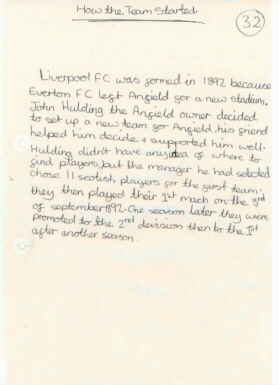 How the Team Started
32
Liverpool FC was formed in 1892 because
Everton FC left Anfield for a new stadium.
John Hulding the Anfield owner decided
to set up a new team for Anfield, his friend
helped him decide + supported him well.
Hulding didn't have any idea of where to
find players, but the manager he had selected
chose 11 scotish players for the first team,
they then played their 1st mach on the 3rd
of september 1892. One season later they were
promoted to the 2nd division then to the 1st
after another season.